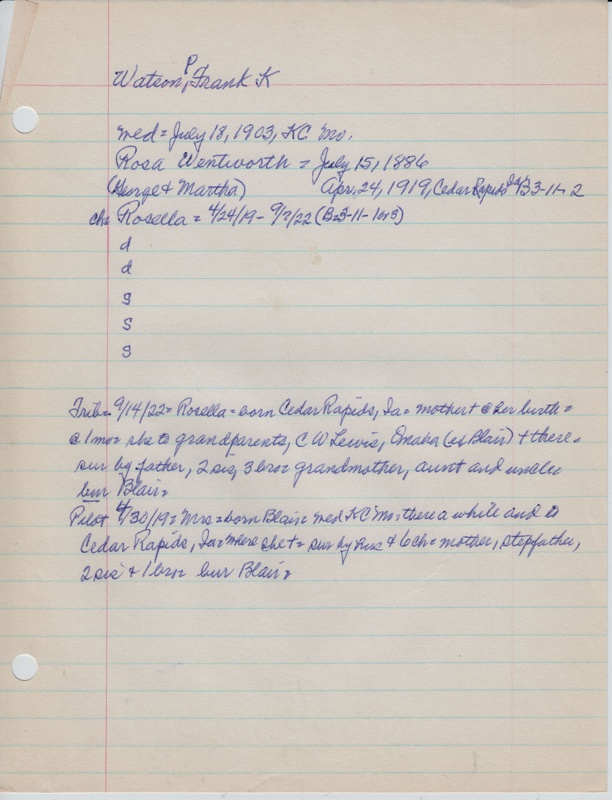 P
Watson, Frank K
med = July 18, 1903, KC Mo.
Rosa Wentworth = July 15, 1886
(George & Martha) Apr. 24, 1919, Cedar Rapids Ia B3-11-2
ch = Rosella = 4/24/19 - 9/?/22 (B=3-11-1or3)
d
d
s
s
s
Trib = 9/14/22 = Rosella = born Cedar Rapids, Ia = mother + @ her birth =
@ 1 mo = she to grandparents, C W Lewis, Omaha (es Blair) + there =
sur by father, 2 sis, 3 bro = grandmother, aunt and uncles
bur Blair =
Pilot 4/30/19 = Mrs = born Blair = med KC Mo = there a while and to
Cedar Rapids, Ia = where she + = sur by hus & 6 ch = mother, stepfather,
2 sis & 1 bro = bur Blair =